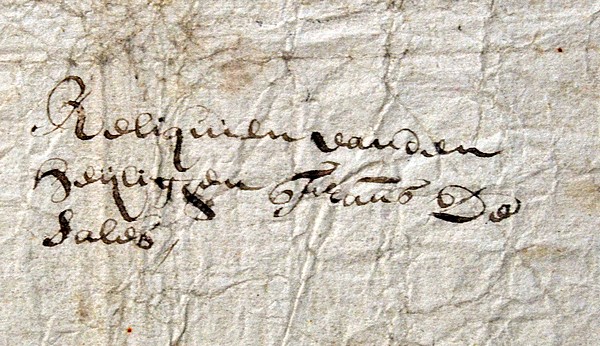 Reliquien vanden
Heyliggen Frans De
Sales